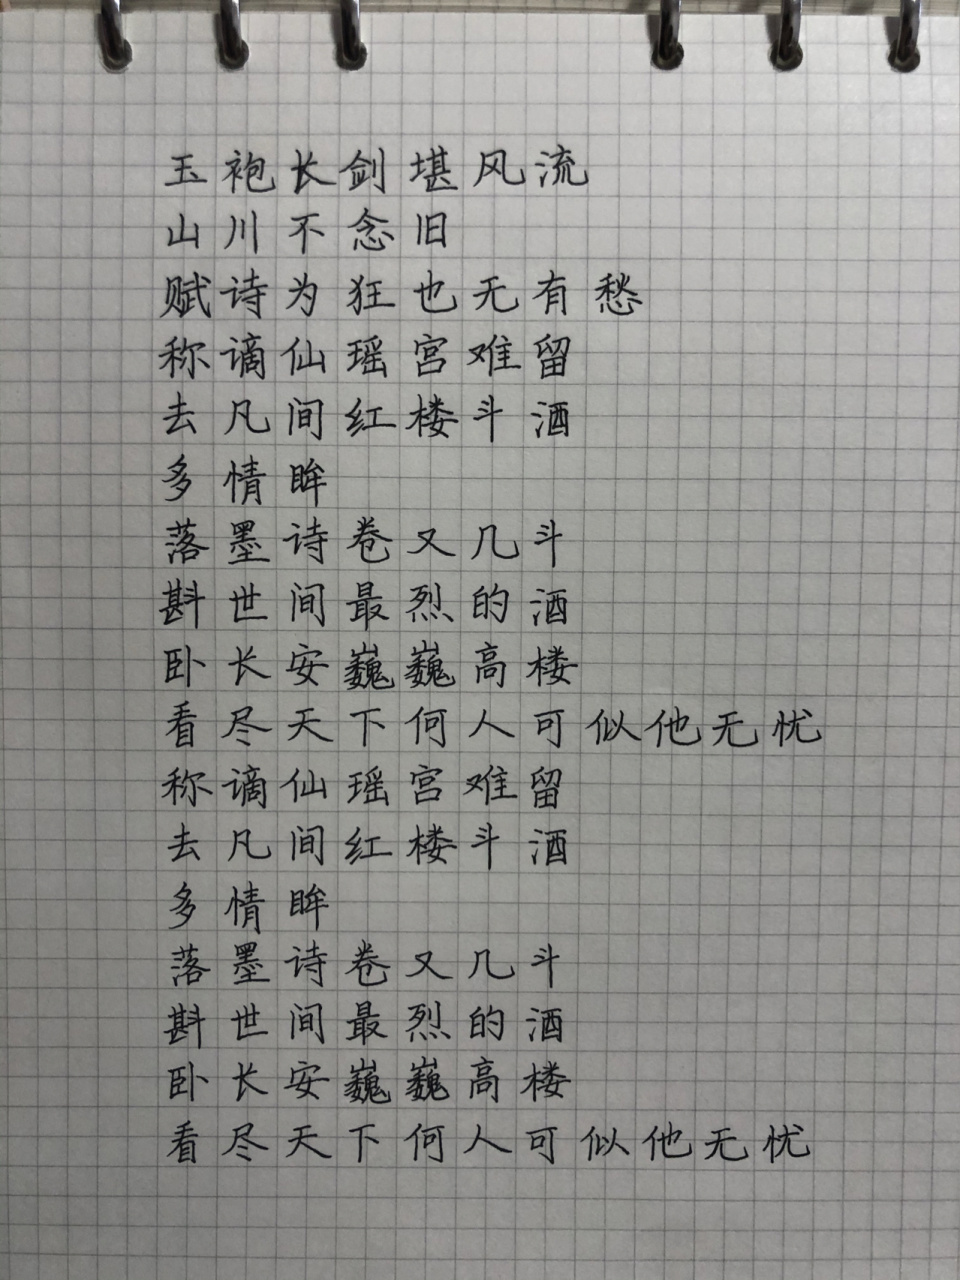 玉袍长剑堪风流
山川不念旧
赋诗为狂也无有愁
称谪仙瑶宫难留
去凡间红楼斗酒
多情眸
落墨诗卷又几斗
斟世间最烈的酒
卧长安巍巍高楼
看尽天下何人可似他无忧
称谪仙瑶宫难留
去凡间红楼斗酒
多情眸
落墨诗卷又几斗
斟世间最烈的酒
卧长安巍巍高楼
看尽天下何人可似他无忧